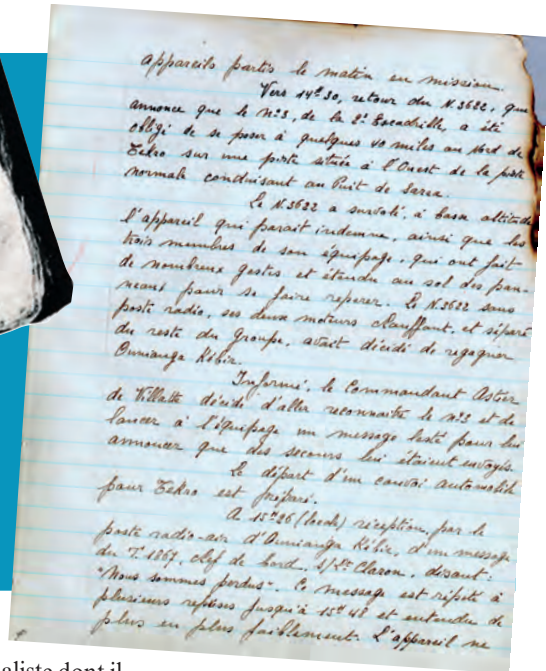 appareils partis le matin en mission.
Vers 14h30, retour du N.3622, que
annonce que le n°3, de la 2e Escadrille, a été
obligé de se poser à quelques 40 miles au Nord de
Tekro sur une piste située à l'Ouest de la piste
normale conduisant au Puit de Sarra.
Le N.3622 a survolé, à basse altitude
l'appareil qui parait indemne, ainsi que les
trois membres de son équipage, qui ont fait
de nombreux gestes et étendu au sol des pan-
neaux pour se faire repérer. Le N.3622 sans
poste radio, ses deux moteurs chauffant, et séparé
du reste du groupe, avait décidé de regagner
Ounianga Kébir.
Informé, le Commandant Astier
de Villatte décide d'aller reconnaitre le n°3 et de
lancer à l'équipage un message lesté pour lui
annoncer que des secours lui étaient envoyés.
Le départ d'un convoi automobile
pour Tekro est préparé.
A 15h26 (locale) réception, par le
poste radio-air d'Ounianga Kébir, d'un message
du T.1867, chef de bord, S/Lt Claron, disant:
"Nous sommes perdus". Ce message est répété à
plusieurs reprises jusqu'à 15h48 et entendu de
plus en plus faiblement. L'appareil ne
aliste dont il